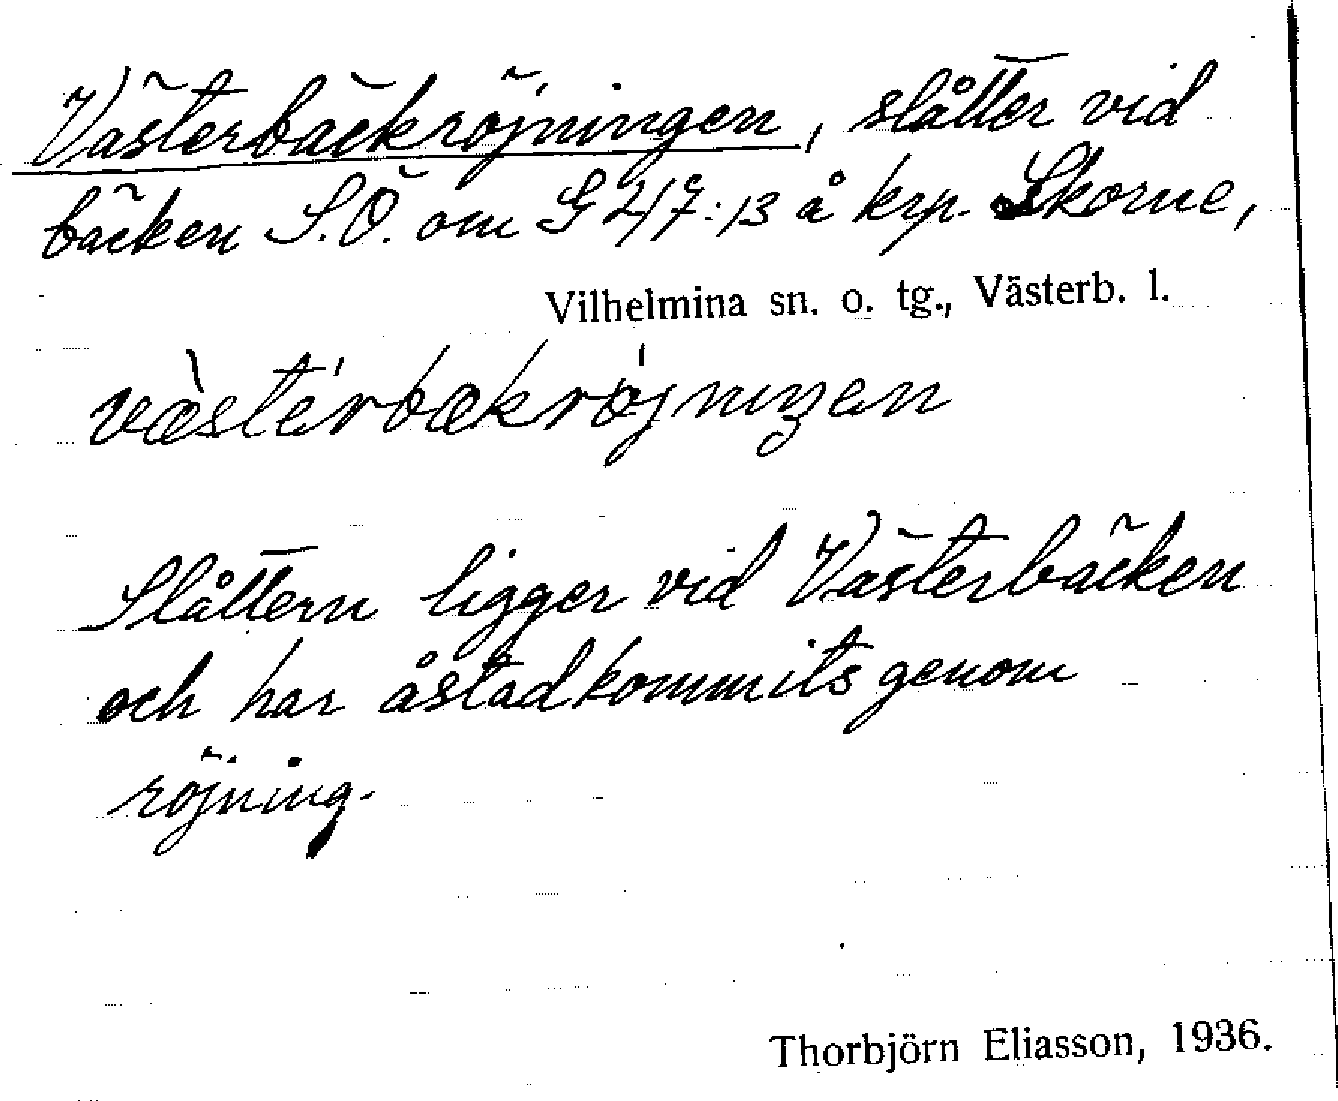 Västerbäckröjningen, slåtter vid
bäcken S.Ö. om G 47:13 å krp. Skorne,
Vilhelmina sn. o. tg., Västerb. l.
væ̀stérbækrøjniŋen
Slåttern ligger vid Västerbäcken
och har åstadkommits genom
röjning.
Thorbjörn Eliasson, 1936.